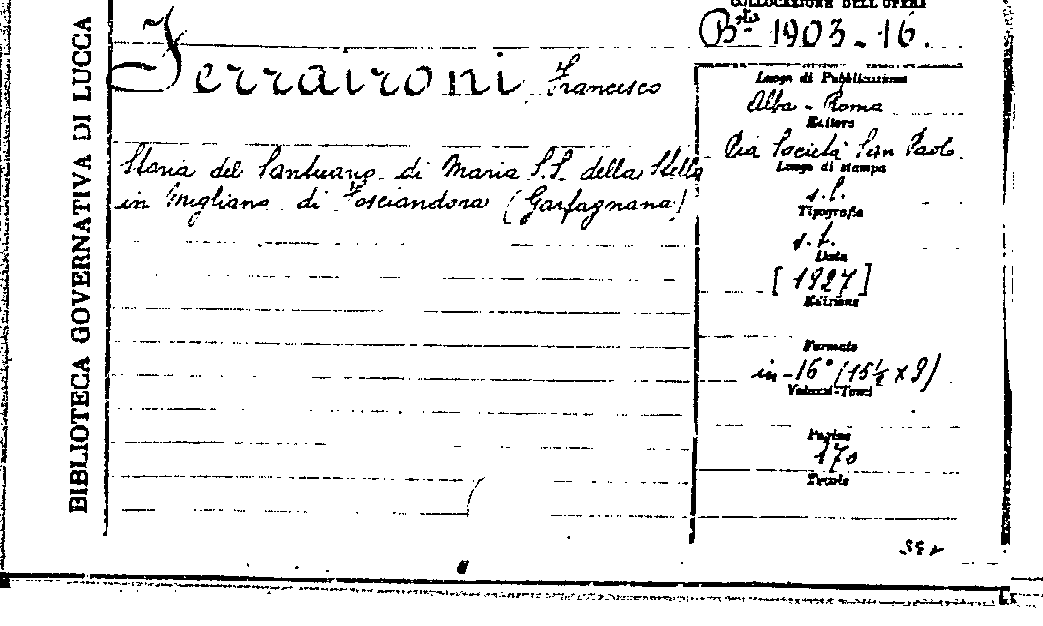 COLLOCAZIONE DELL'OPERA
Bta 1903-16.
Ferraironi, Francesco
Storia del Santuario di Maria S.S. della Stella
in Migliano di Fosciandora (Garfagnana)
BIBLIOTECA GOVERNATIVA DI LUCCA
Luogo di Pubblicazione
Alba - Roma
Editore
Pia Società San Paolo
Luogo di stampa
s.l.
Tipografia
s.t.
Data
[1927]
Edizione
Formato
in-16° (15½ x 9)
Volumi-Tomi
Pagine
170
Tavole